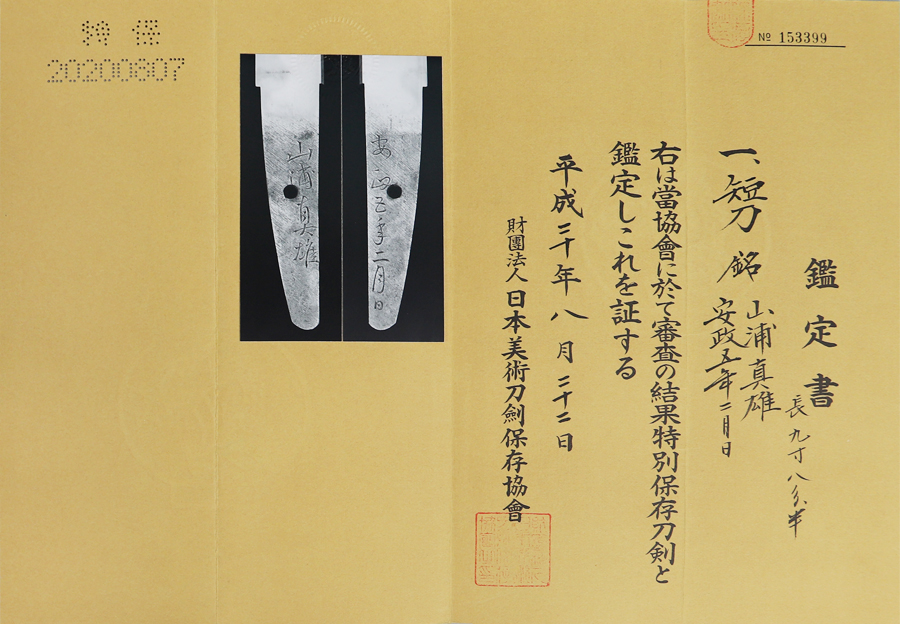 № 153399
鑑定書
長九寸八分半
一、短刀 銘 山浦真雄
安政五年二月日
右は當協會に於て審査の結果特別保存刀剣と
鑑定しこれを証する
平成三十年八月二十二日
財團法人 日本美術刀劍保存協會
安政五年二月日
山浦真雄
特保